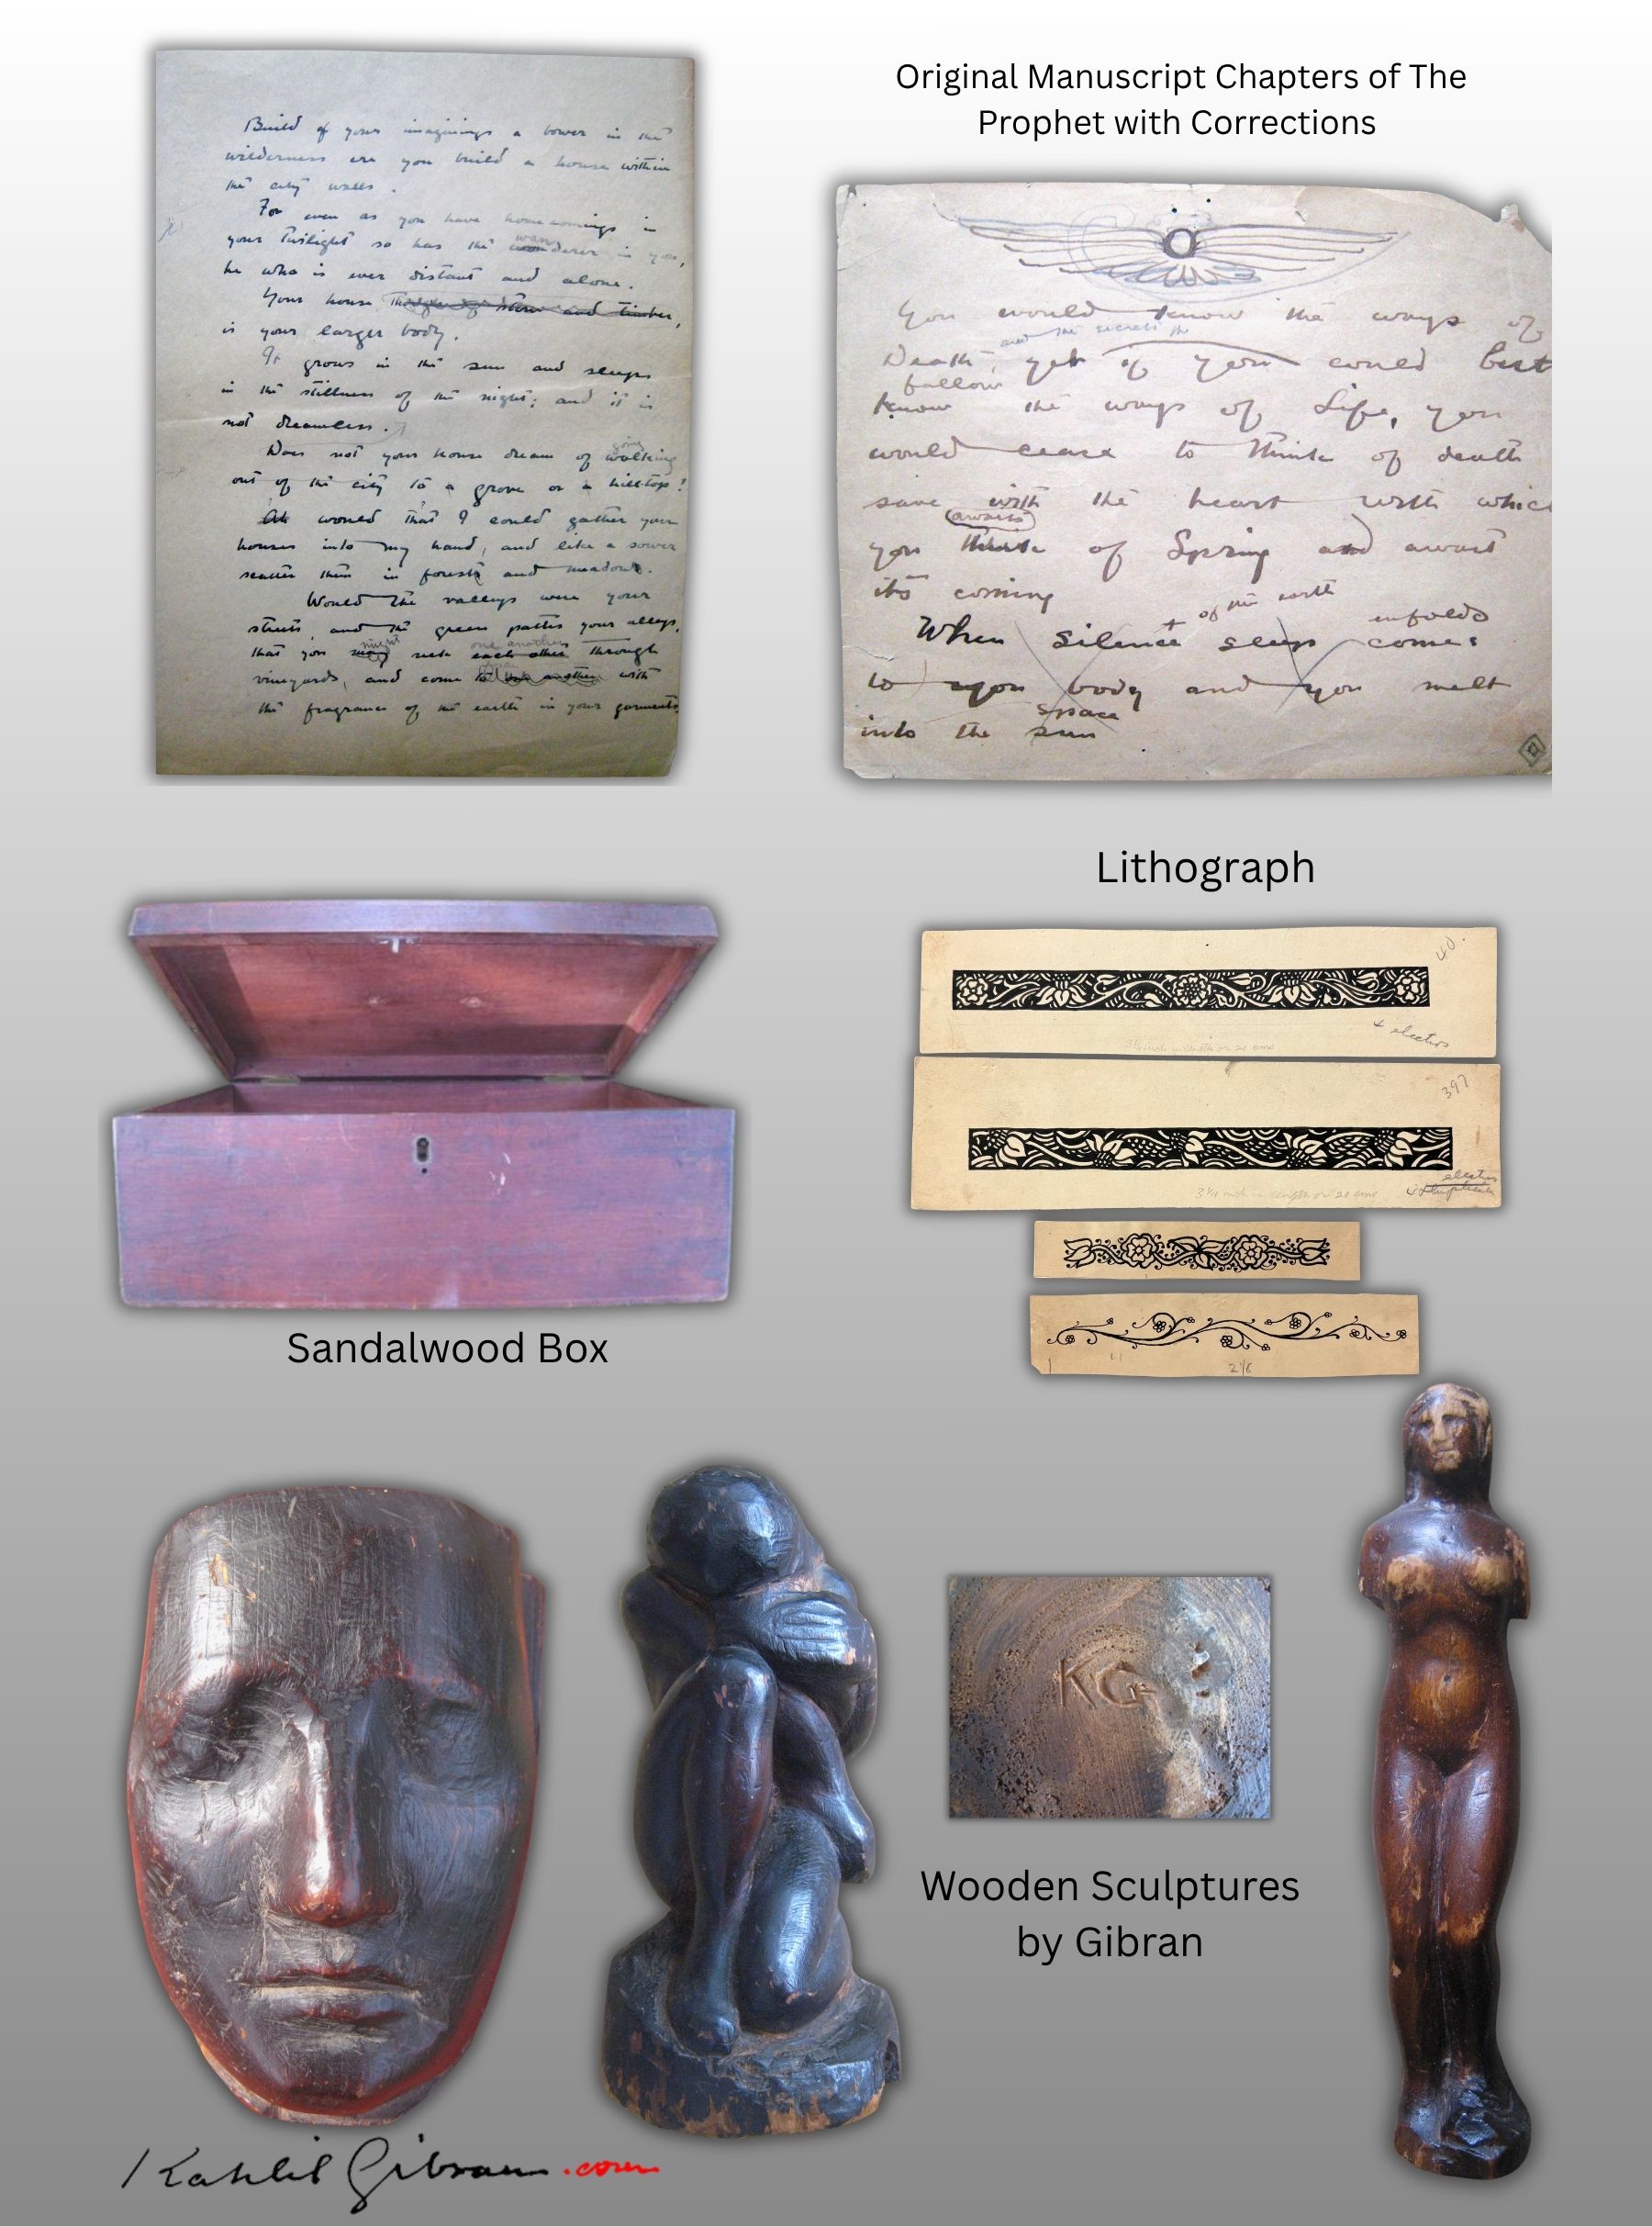 Build of your imaginings a bower in the
wilderness ere you build a house within
the city walls.
For even as you have homecomings in
wan
your twilight so has the wonderer in you,
he who is ever distant and alone.
Your house stone and timber,
is your larger body.
It grows in the sun and sleeps
in the stillness of the night; and it is
not dreamless.
going
Does not your house dream of walking
out of the city to a grove or a hilltop?
Ah would that I could gather your
houses into my hand, and like a sower
scatter them in forests and meadows.
Would the valleys were your
streets, and the green paths your alleys,
might one another
that you may seek each other through
vineyards, and come with
the fragrance of the earth in your garments
Original Manuscript Chapters of The
Prophet with Corrections
You would know the ways of
and the secrets
Death, yet if you could but
follow
know the ways of Life, you
would cease to think of death
save with the heart with whic
awaits
you think of Spring and await
its coming
of the earth
When silence sleep comes
enfolds
to you body and you melt
space
into the sun
Sandalwood Box
Lithograph
40.
4 electros
397
3 1/4 inch in length or 20 ems
electros
2 1/8
KG
Wooden Sculptures
by Gibran
Kahlil Gibran.com